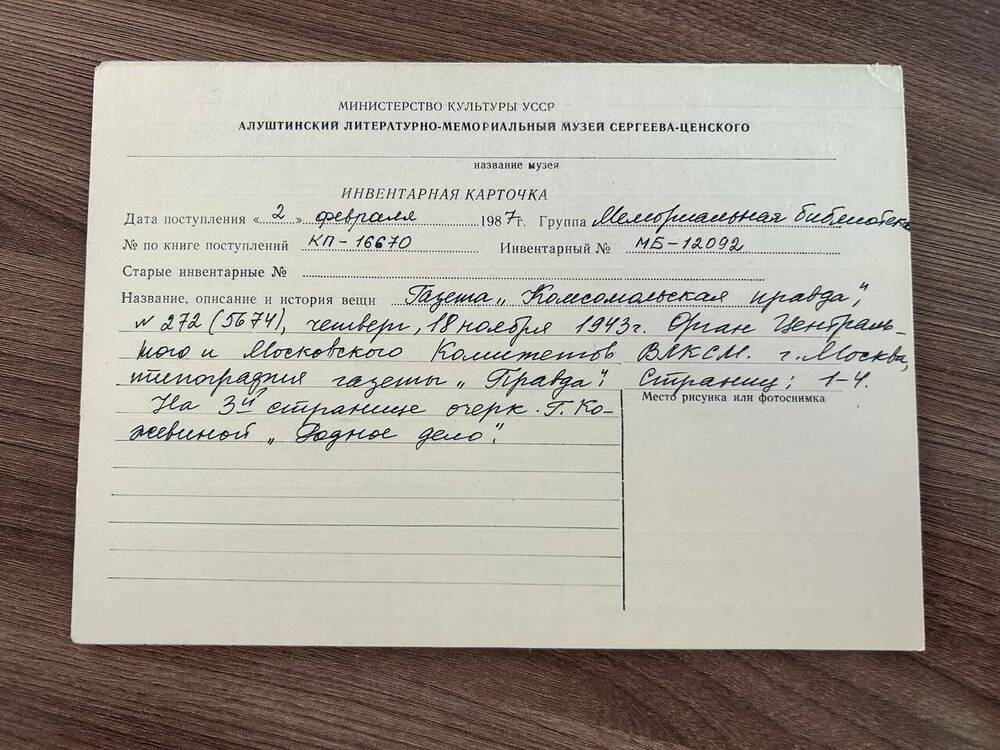 МИНИСТЕРСТВО КУЛЬТУРЫ УССР
АЛУШТИНСКИЙ ЛИТЕРАТУРНО-МЕМОРИАЛЬНЫЙ МУЗЕЙ СЕРГЕЕВА-ЦЕНСКОГО
название музея
ИНВЕНТАРНАЯ КАРТОЧКА
Дата поступления «2» февраля 1987г. Группа Мемориальная библиотека
№ по книге поступлений КП-16670 Инвентарный № МБ-12092
Старые инвентарные №
Название, описание и история вещи Газета „Комсомольская правда",
№ 272 (5674), четверг, 18 ноября 1943г. Орган Централь-
ного и Московского Комитетов ВЛКСМ. г. Москва,
типография газеты „Правда". Страниц: 1-4.
Место рисунка или фотоснимка
На 3й странице очерк Г. Ко-
жевиной „Родное дело".